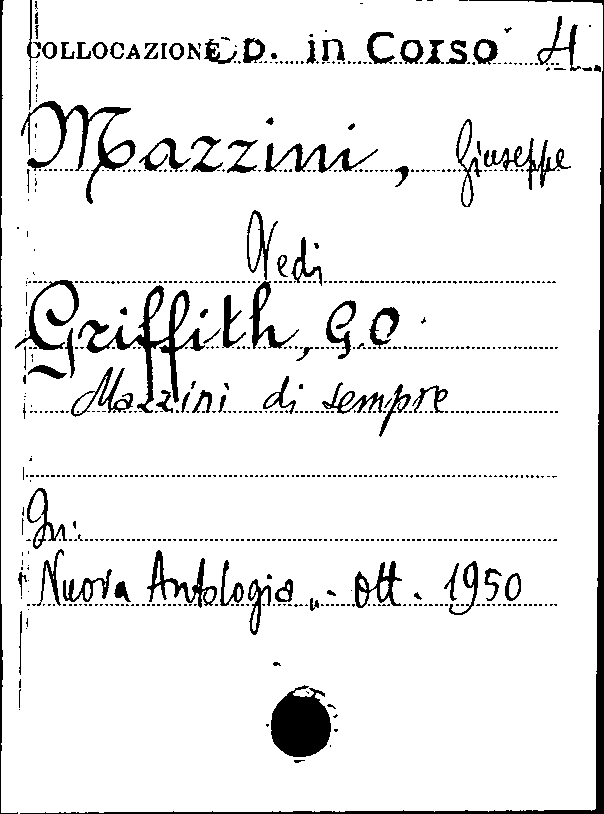 COLLOCAZIONE D. in Corso 4
Mazzini, Giuseppe
Vedi
Griffith, G.O.
Mazzini di sempre
In:
"Nuova Antologia". Ott. 1950